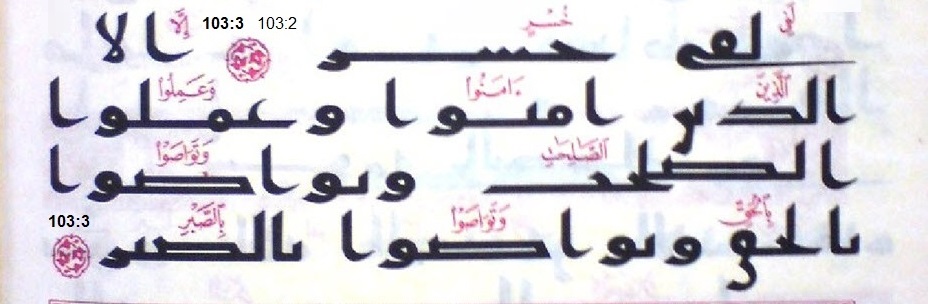 لَفِى خُسْرٍ 103:2 103:3 إِلَّا
لفى خسر الا
الَّذِينَ ءَامَنُوا وَعَمِلُوا
الذين امنوا وعملوا
الصَّالِحَاتِ وَتَوَاصَوْا
الصلحت وتواصوا
بِالْحَقِّ وَتَوَاصَوْا بِالصَّبْرِ 103:3
بالحق وتواصوا بالصبر